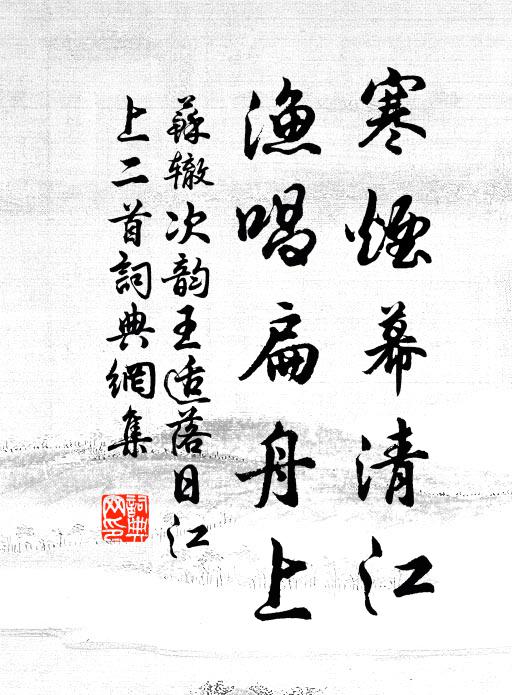 寒煙幕清江
漁唱扁舟上
蘇辙次韵王适落日江
上二首詞典網集
詞典
网印